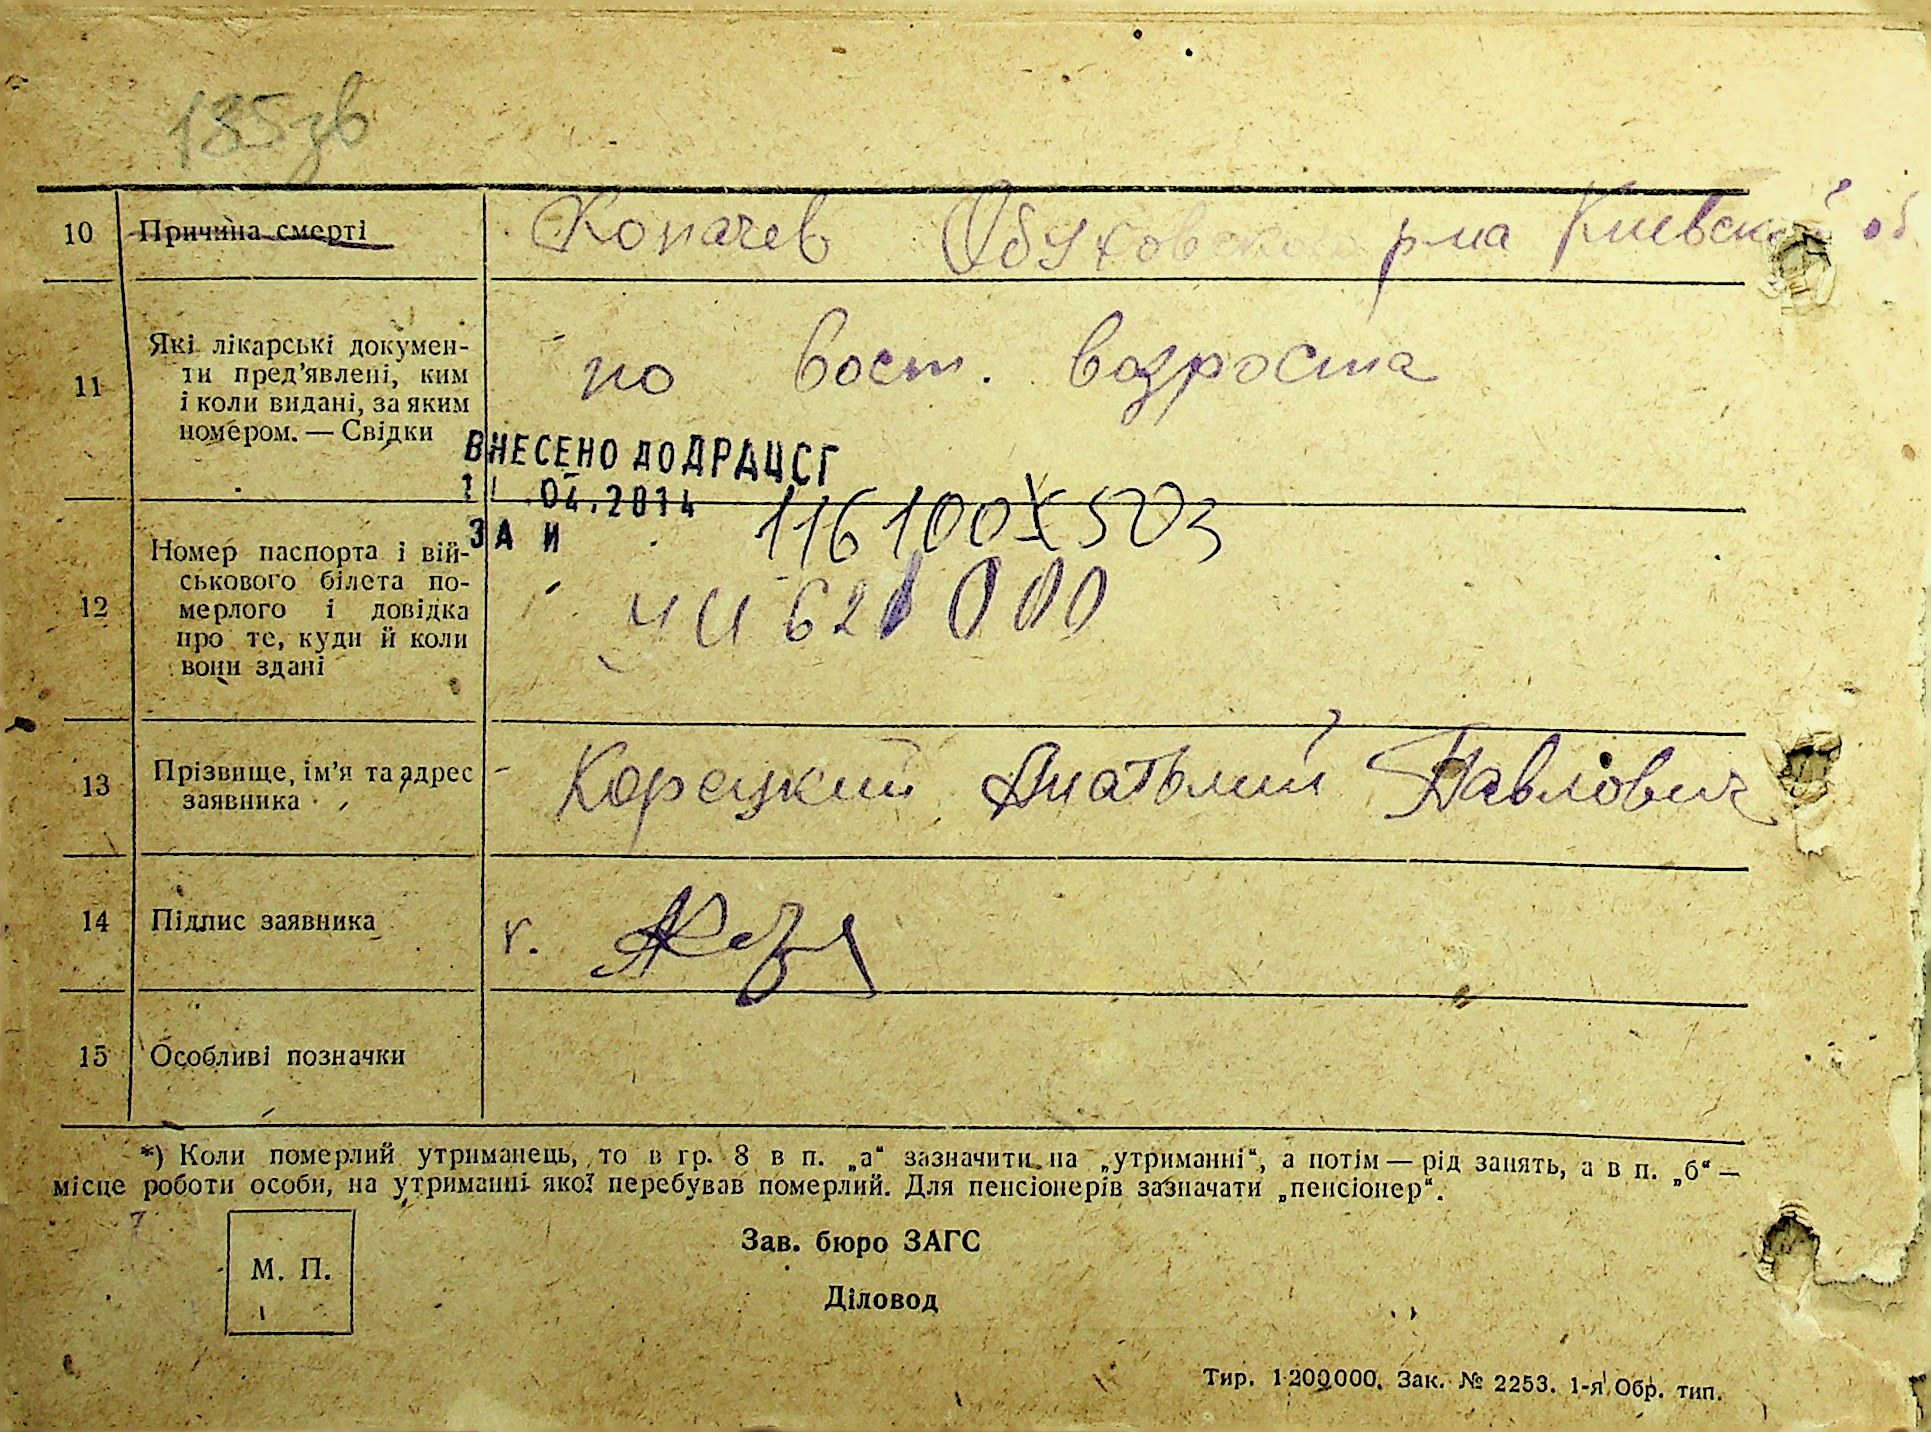 135зв
10 Причина смерті Копачев Обуховского р-на Киевской об
11 Які лікарські докумен-
ти пред'явлені, ким
і коли видані, за яким
номером. — Свідки
по вост. возроста
ВНЕСЕНО ДО ДРАЦСГ
04.2014
ЗА И 116100
12 Номер паспорта і вій-
ськового білета по-
мерлого і довідка
про те, куди й коли
вони здані
13 Прізвище, ім'я та адрес
заявника
Корецкий Анатолий Павлович
14 Підпис заявника г.
15 Особливі позначки
*) Коли померлий утриманець, то в гр. 8 в п. „а“ зазначити на „утриманні“, а потім — рід занять, а в п. „б“ —
місце роботи особи, на утриманні якої перебував померлий. Для пенсіонерів зазначати „пенсіонер“.
М. П.
Зав. бюро ЗАГС
Діловод
Тир. 1200000. Зак. № 2253. 1-я Обр. тип.